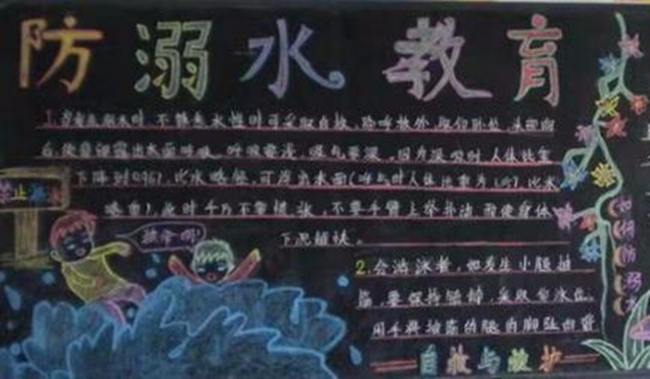 防溺水教育
1.当发生溺水时,不熟悉水性时可采取自救,除呼救外,取仰卧位,头部向
后,使鼻部露出水面呼吸,呼吸要浅,吸气要深。因为深吸时人体比重
下降到0.967,比水略轻,可浮出水面(呼气时人体比重为1.057,比水
略重),此时千万不要慌张,不要手臂上举乱动,而使身体
下沉越快。
禁止游泳
救命啊!
2.会游泳者,如发生小腿抽
筋,要保持镇静,采取仰泳位,
用手将抽筋的腿的脚趾向背
自救与救护
如何防溺水